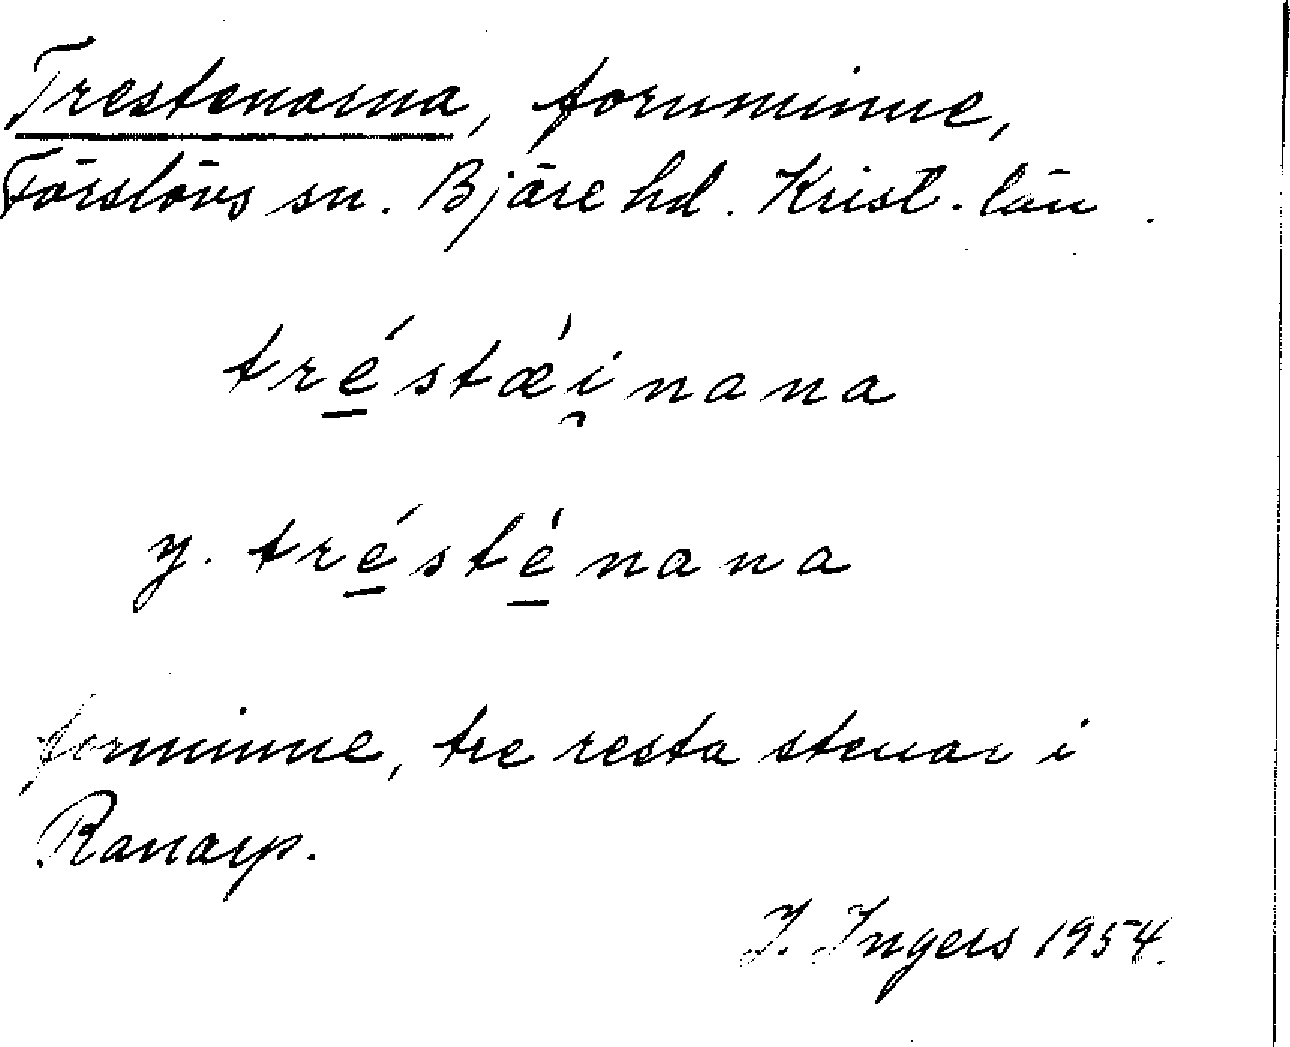 Trestenarna, fornminne,
Förslövs sn. Bjäre hd. Krist. län.
tré̱stǽi̯nana
y. tré̱sté̱nana
fornminne, tre resta stenar i
Ranarp.
I. Ingers 1954.